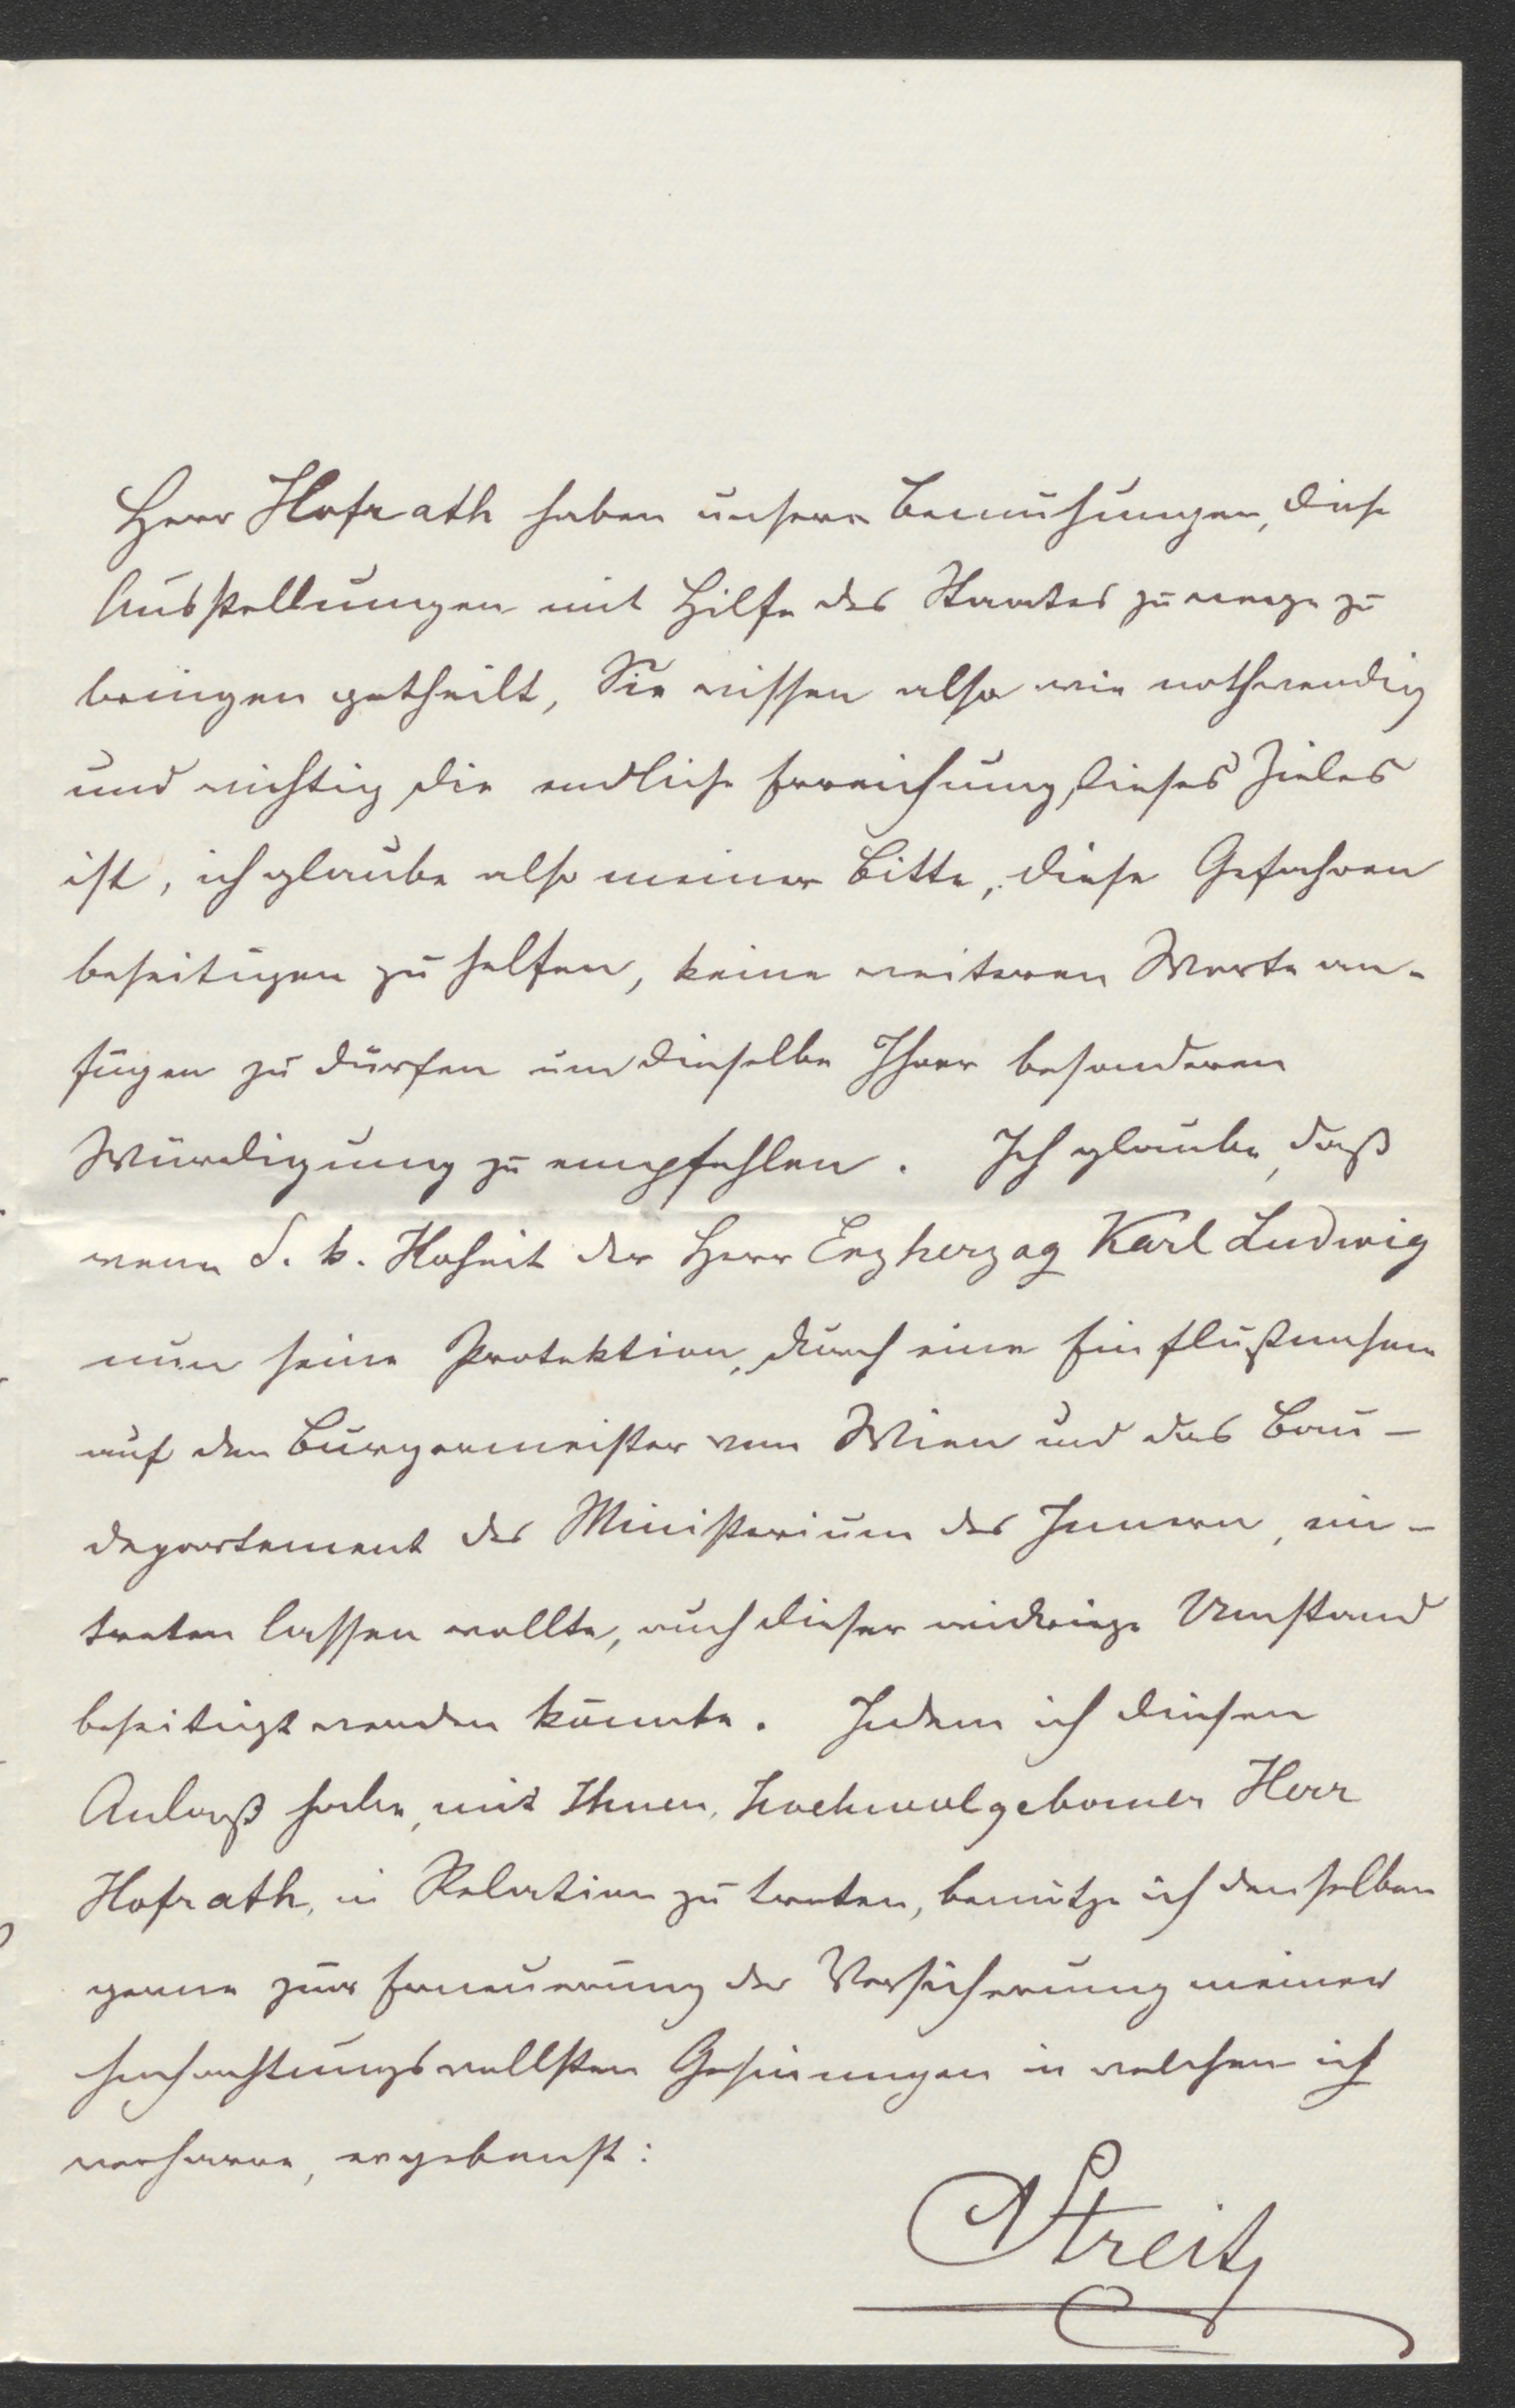 Herr Hofrath haben unsere Bemühungen, diese
Ausstellungen mit Hilfe des Staates zuwege zu
bringen getheilt, Sie wissen also wie nothwendig
und wichtig die endliche Erreichung dieses Zieles
ist, ich glaube also meiner Bitte, diese Gefahren
beseitigen zu helfen, keine weiteren Worte an-
fügen zu dürfen um dieselbe Ihrer besonderen
Würdigung zu empfehlen. Ich glaube, daß
wenn S. k. Hoheit der Herr Erzherzog Karl Ludwig
nun seine Protektion, durch eine Einflußnahme
auf den Bürgermeister von Wien und das Bau-
departement des Ministerium des Innern, ein-
treten lassen wollte, auch dieser widrige Umstand
beseitigt werden könnte. Indem ich diesen
Anlaß habe, mit Ihnen, hochwolgeborner Herr
Hofrath, in Relation zu treten, benütze ich denselben
gerne zur Erneuerung der Versicherung meiner
hochachtungsvollsten Gesinnungen in welchen ich
verharre, ergebenst:
Streit